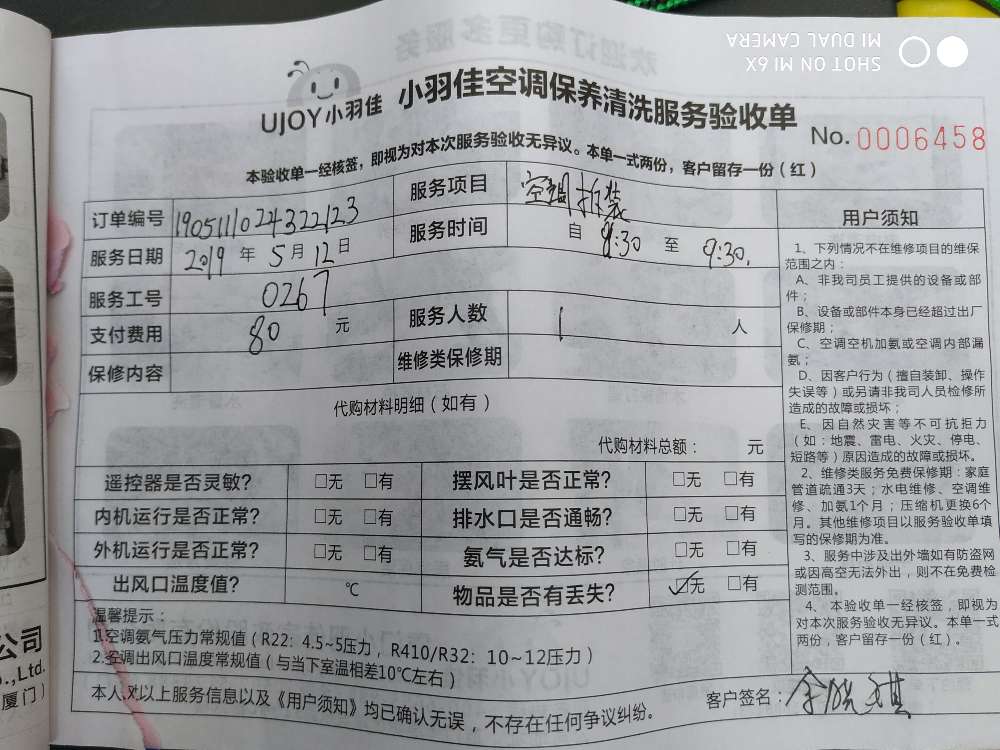 欢迎订购更多服务
SHOT ON MI 6X
MI DUAL CAMERA
UJOY小羽佳 小羽佳空调保养清洗服务验收单
No. 0006458
本验收单一经核签，即视为对本次服务验收无异议。本单一式两份，客户留存一份（红）
订单编号 190511024322123 服务项目 空调拆装
服务日期 2019 年 5 月 12 日 服务时间 自 8:30 至 9:30.
服务工号 0267
支付费用 80 元 服务人数 1 人
保修内容 维修类保修期
代购材料明细（如有）
代购材料总额： 元
遥控器是否灵敏？ □无 □有 摆风叶是否正常？ □无 □有
内机运行是否正常？ □无 □有 排水口是否通畅？ □无 □有
外机运行是否正常？ □无 □有 氨气是否达标？ □无 □有
出风口温度值？ ℃ 物品是否有丢失？ ☑无 □有
温馨提示：
1.空调氨气压力常规值（R22: 4.5~5压力，R410/R32: 10~12压力）
2.空调出风口温度常规值（与当下室温相差10℃左右）
本人对以上服务信息以及《用户须知》均已确认无误，不存在任何争议纠纷。
客户签名：余
用户须知
1、下列情况不在维修项目的维保
范围之内：
A、非我司员工提供的设备或部
件；
B、设备或部件本身已经超过出厂
保修期；
C、空调空机加氨或空调内部漏
氨；
D、因客户行为（擅自装卸、操作
失误等）或另请非我司人员检修所
造成的故障或损坏；
E、因自然灾害等不可抗拒力
（如：地震、雷电、火灾、停电、
短路等）原因造成的故障或损坏。
2、维修类服务免费保修期：家庭
管道疏通3天；水电维修、空调维
修、加氨1个月；压缩机更换6个
月。其他维修项目以服务验收单填
写的保修期为准。
3、服务中涉及出外墙如有防盗网
或因高空无法外出，则不在免费检
测范围。
4、本验收单一经核签，即视为
对本次服务验收无异议。本单一式
两份，客户留存一份（红）。
公司
.,Ltd.
厦门）